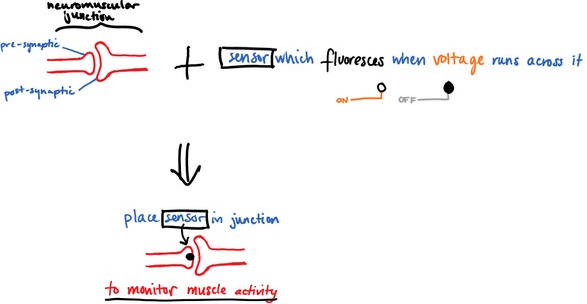 neuromuscular
junction
pre-synaptic
post-synaptic
+ sensor which fluoresces when voltage runs across it
ON OFF
place sensor in junction
to monitor muscle activity